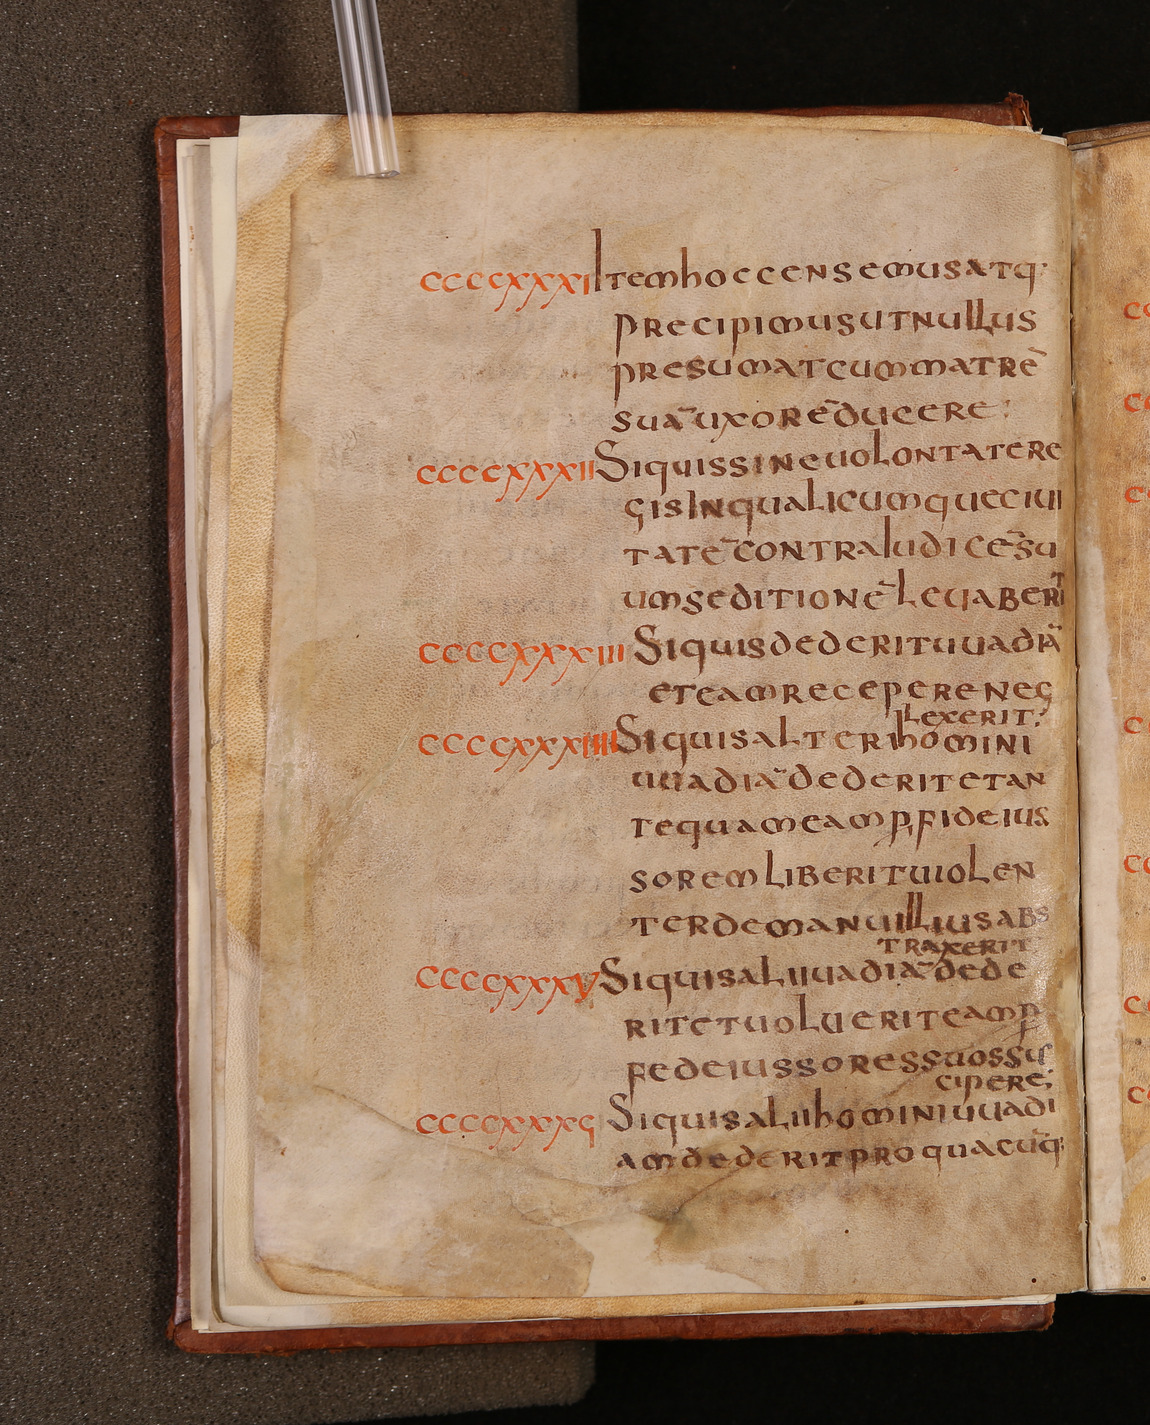 CCCCXXXI Itemhoccensemusatq·
precipimusutnullus
presumatcummatrē
suāuxorēducere:
CCCCXXXII Siquissineuolontatere
gisInqualicumqueciui
tatēcontraIudicēsu
umseditionēleuaberit
CCCCXXXIII Siquisdederituuadiā
eteamrecepereneg
lexerit:
CCCCXXXIIII Siquisalterihomini
uuadiādederitetan
tequameamp̱fideius
soremliberituiolen
terdemanuilliusabs
traxerit
CCCCXXXV Siquisaliiuuadiādede
ritetuolueriteamp̱
fedeiussoressuossus
cipere;
CCCCXXXϛ Siquisaliihominiuuadi
amdederitproquacūq·